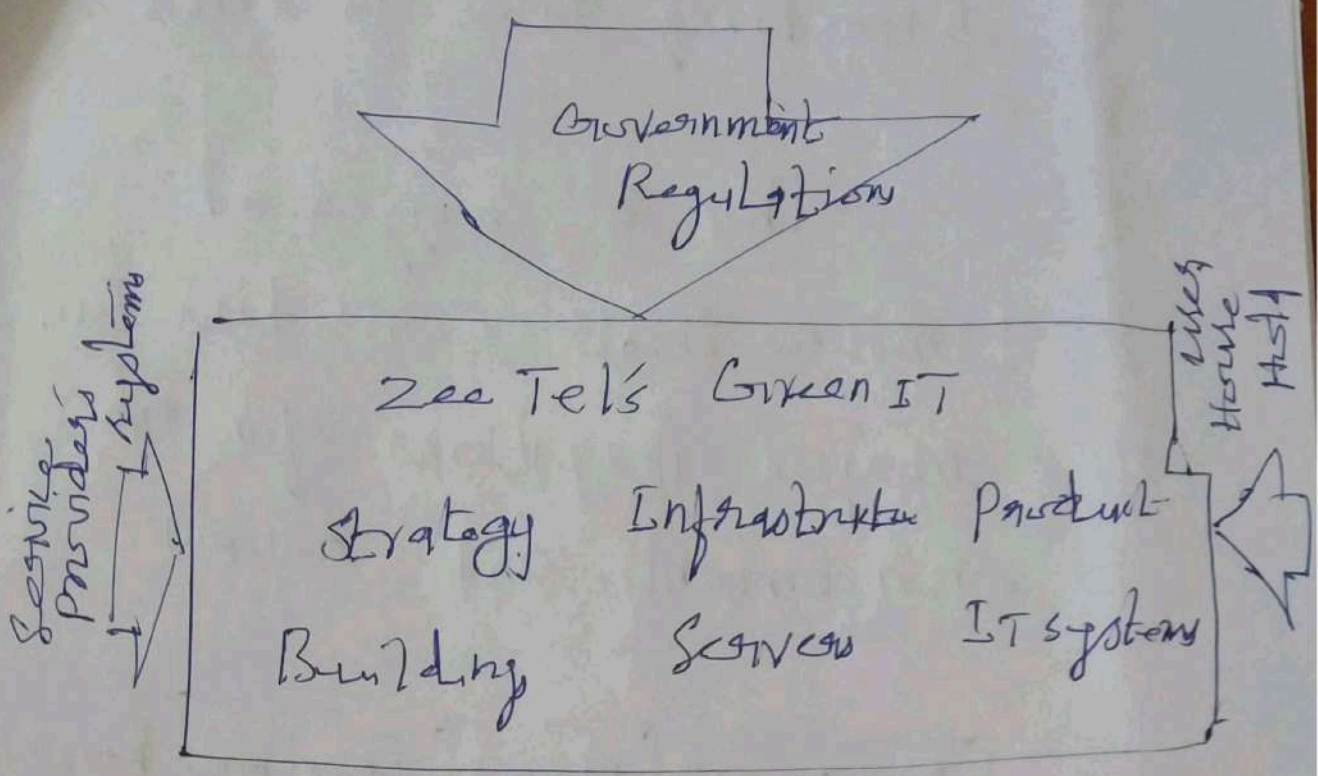 Government
Regulations
Service
Provider's
Systems
User
House
Hold
Zee Tel's Green IT
Strategy Infrastructure Product
Building Servers IT systems